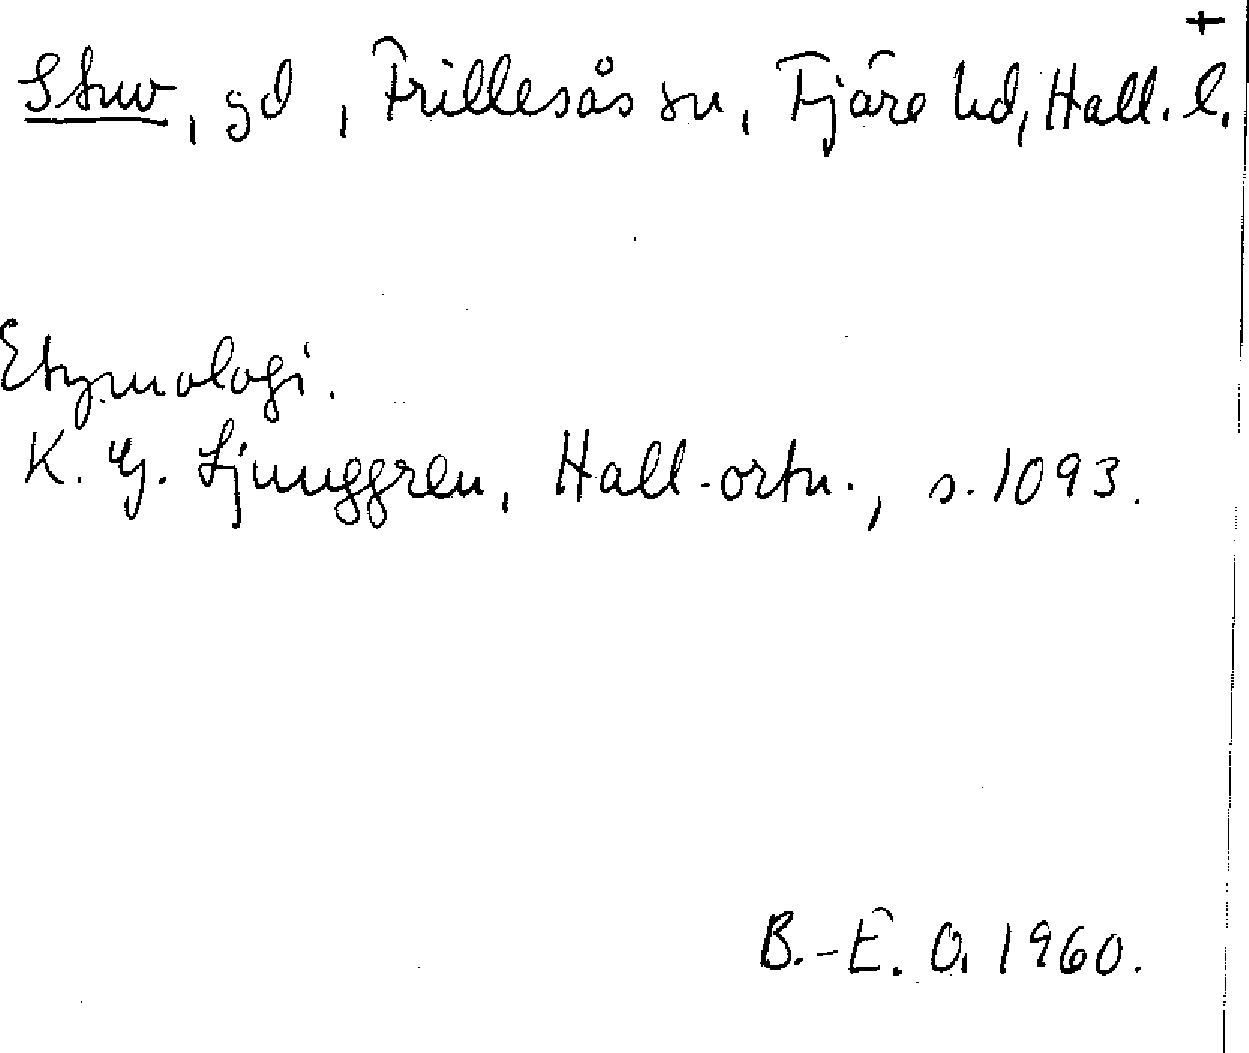 †
Stuv, gd, Frillesås sn, Fjäre hd, Hall. l.
Etymologi.
K. G. Ljunggren, Hall. ortn., s. 1093.
B.-E. O. 1960.